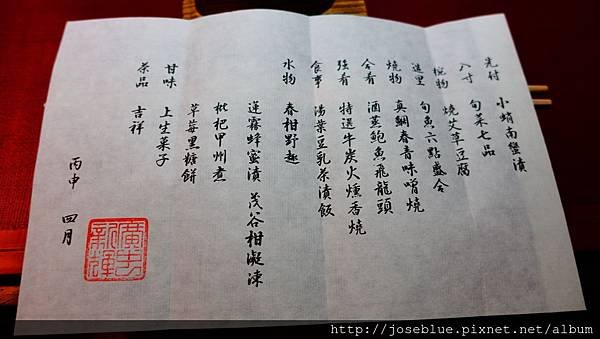 先付 小蛸南蠻漬
八寸 旬菜七品
椀物 燒艾草豆腐
造里 旬魚六點盛合
燒物 真鯛春青味噌燒
合肴 酒蒸鮑魚飛龍頭
強肴 特選牛炭火燻香燒
食事 湯葉豆乳茶漬飯
水物 春柑野趣
蓮霧蜂蜜漬 茂谷柑凝凍
枇杷甲州煮
草莓黑糖餅
甘味 上生菓子
茶品 吉祥
丙申 四月
http://joseblue.pixnet.net/album